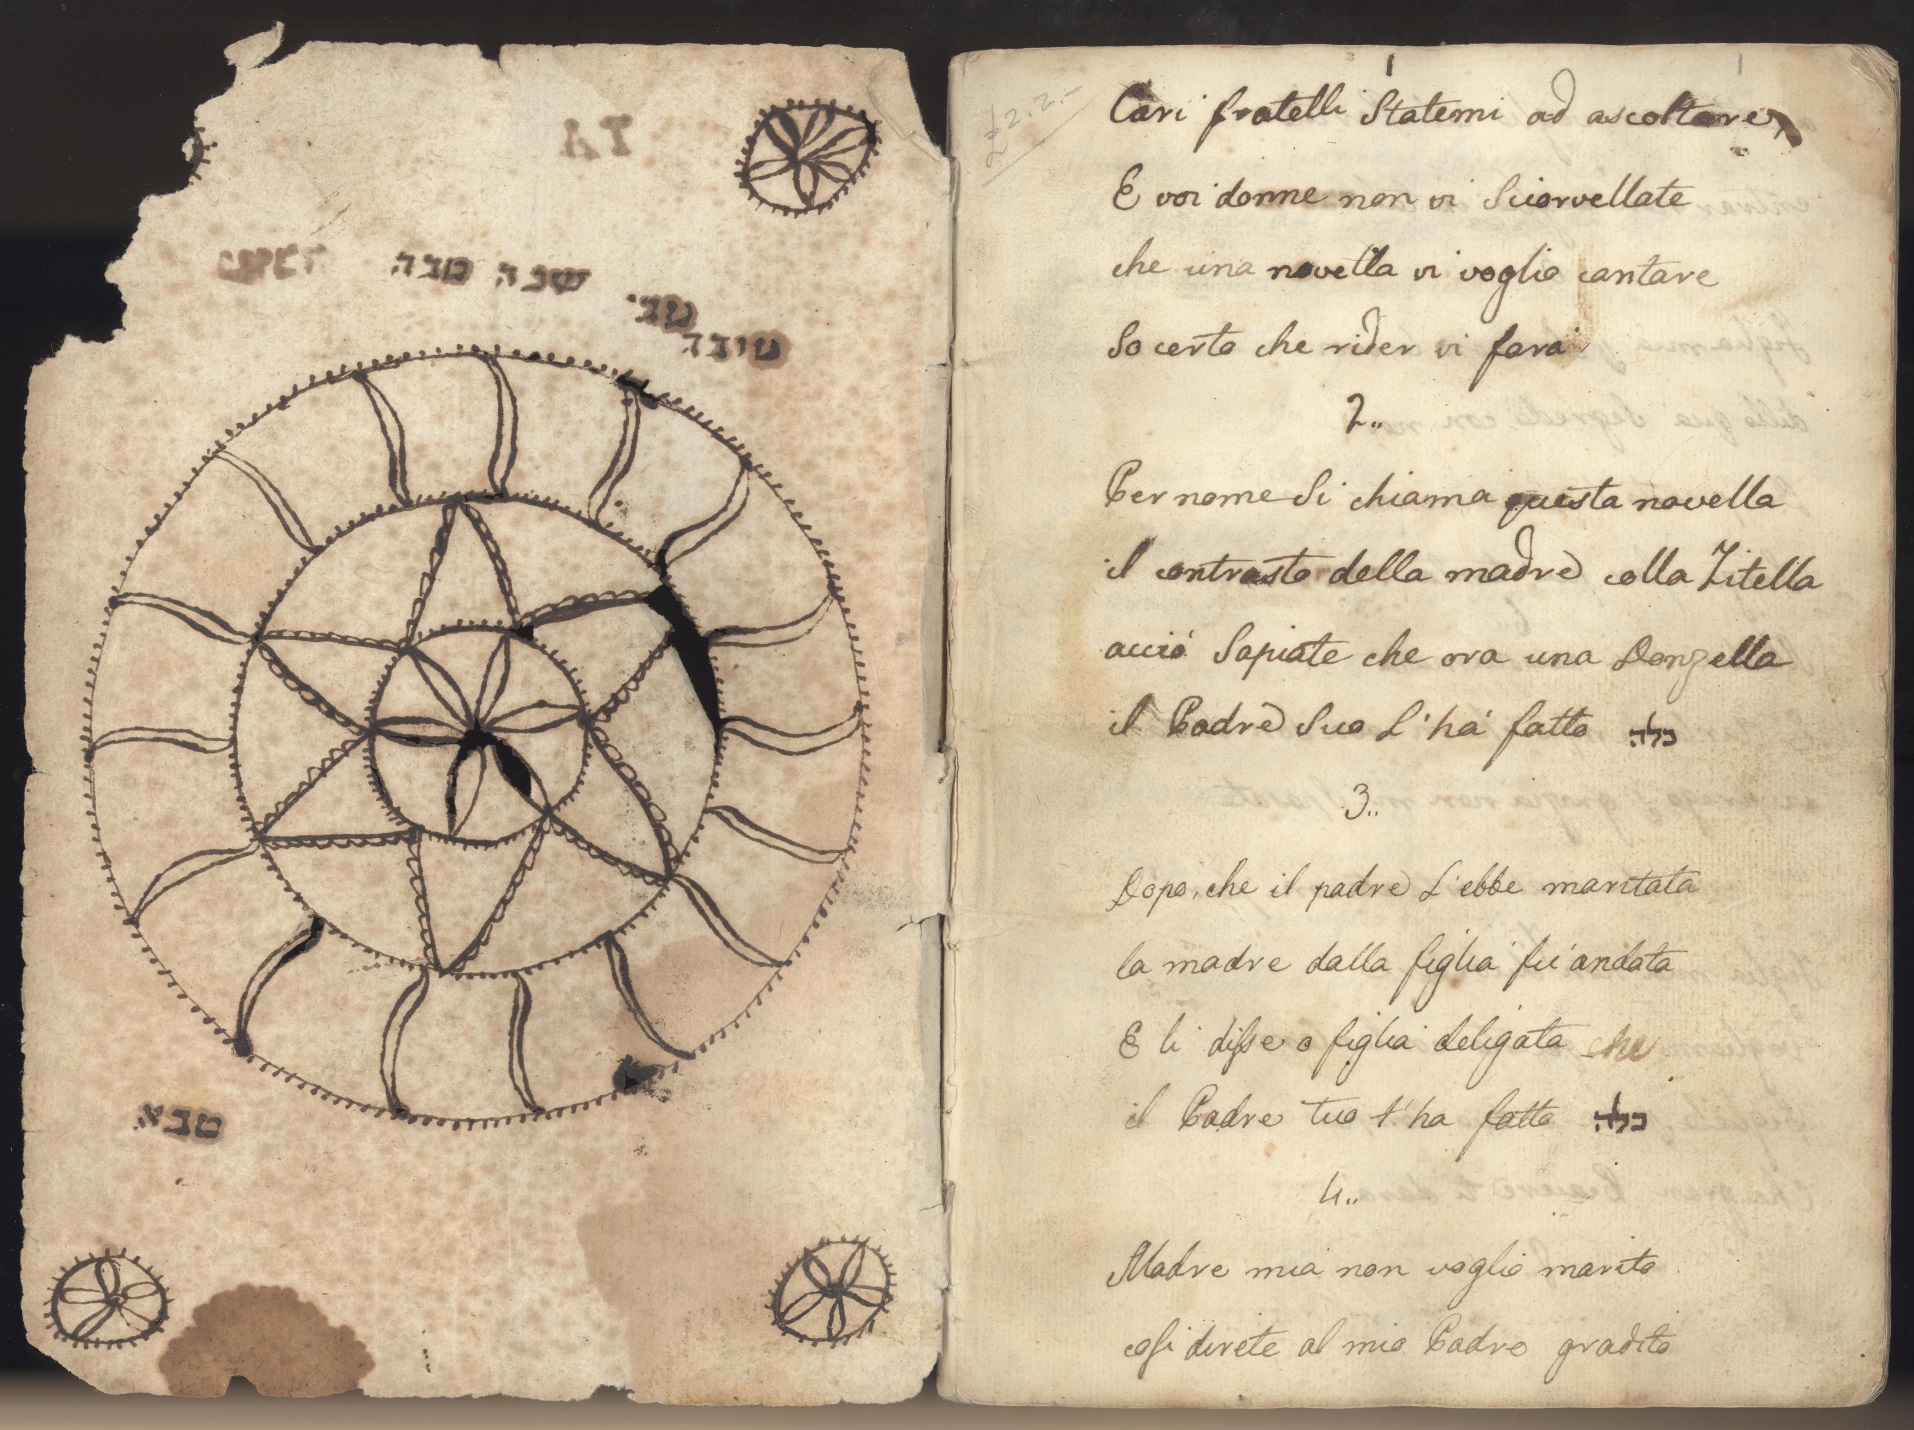 TA
שנה טובה
טובה
טבא
£2.2.-
Cari fratelli Statemi ad ascoltare,
E voi donne non vi Sciervellate
che una novella vi voglio cantare
So certo che rider vi fará
2..
Per nome Si chiama questa novella
il contrasto della madre colla Zitella
acció Sapiate che ora una Donzella
il Padre Suo L'há fatto כלה
3..
Dopo, che il padre L'ebbe maritata
la madre dalla figlia fú andata
E li disse o figlia deligata che
il Padre tuo t'ha fatto כלה
4..
Madre mia non voglio marito
cosi direte al mio Padre gradito